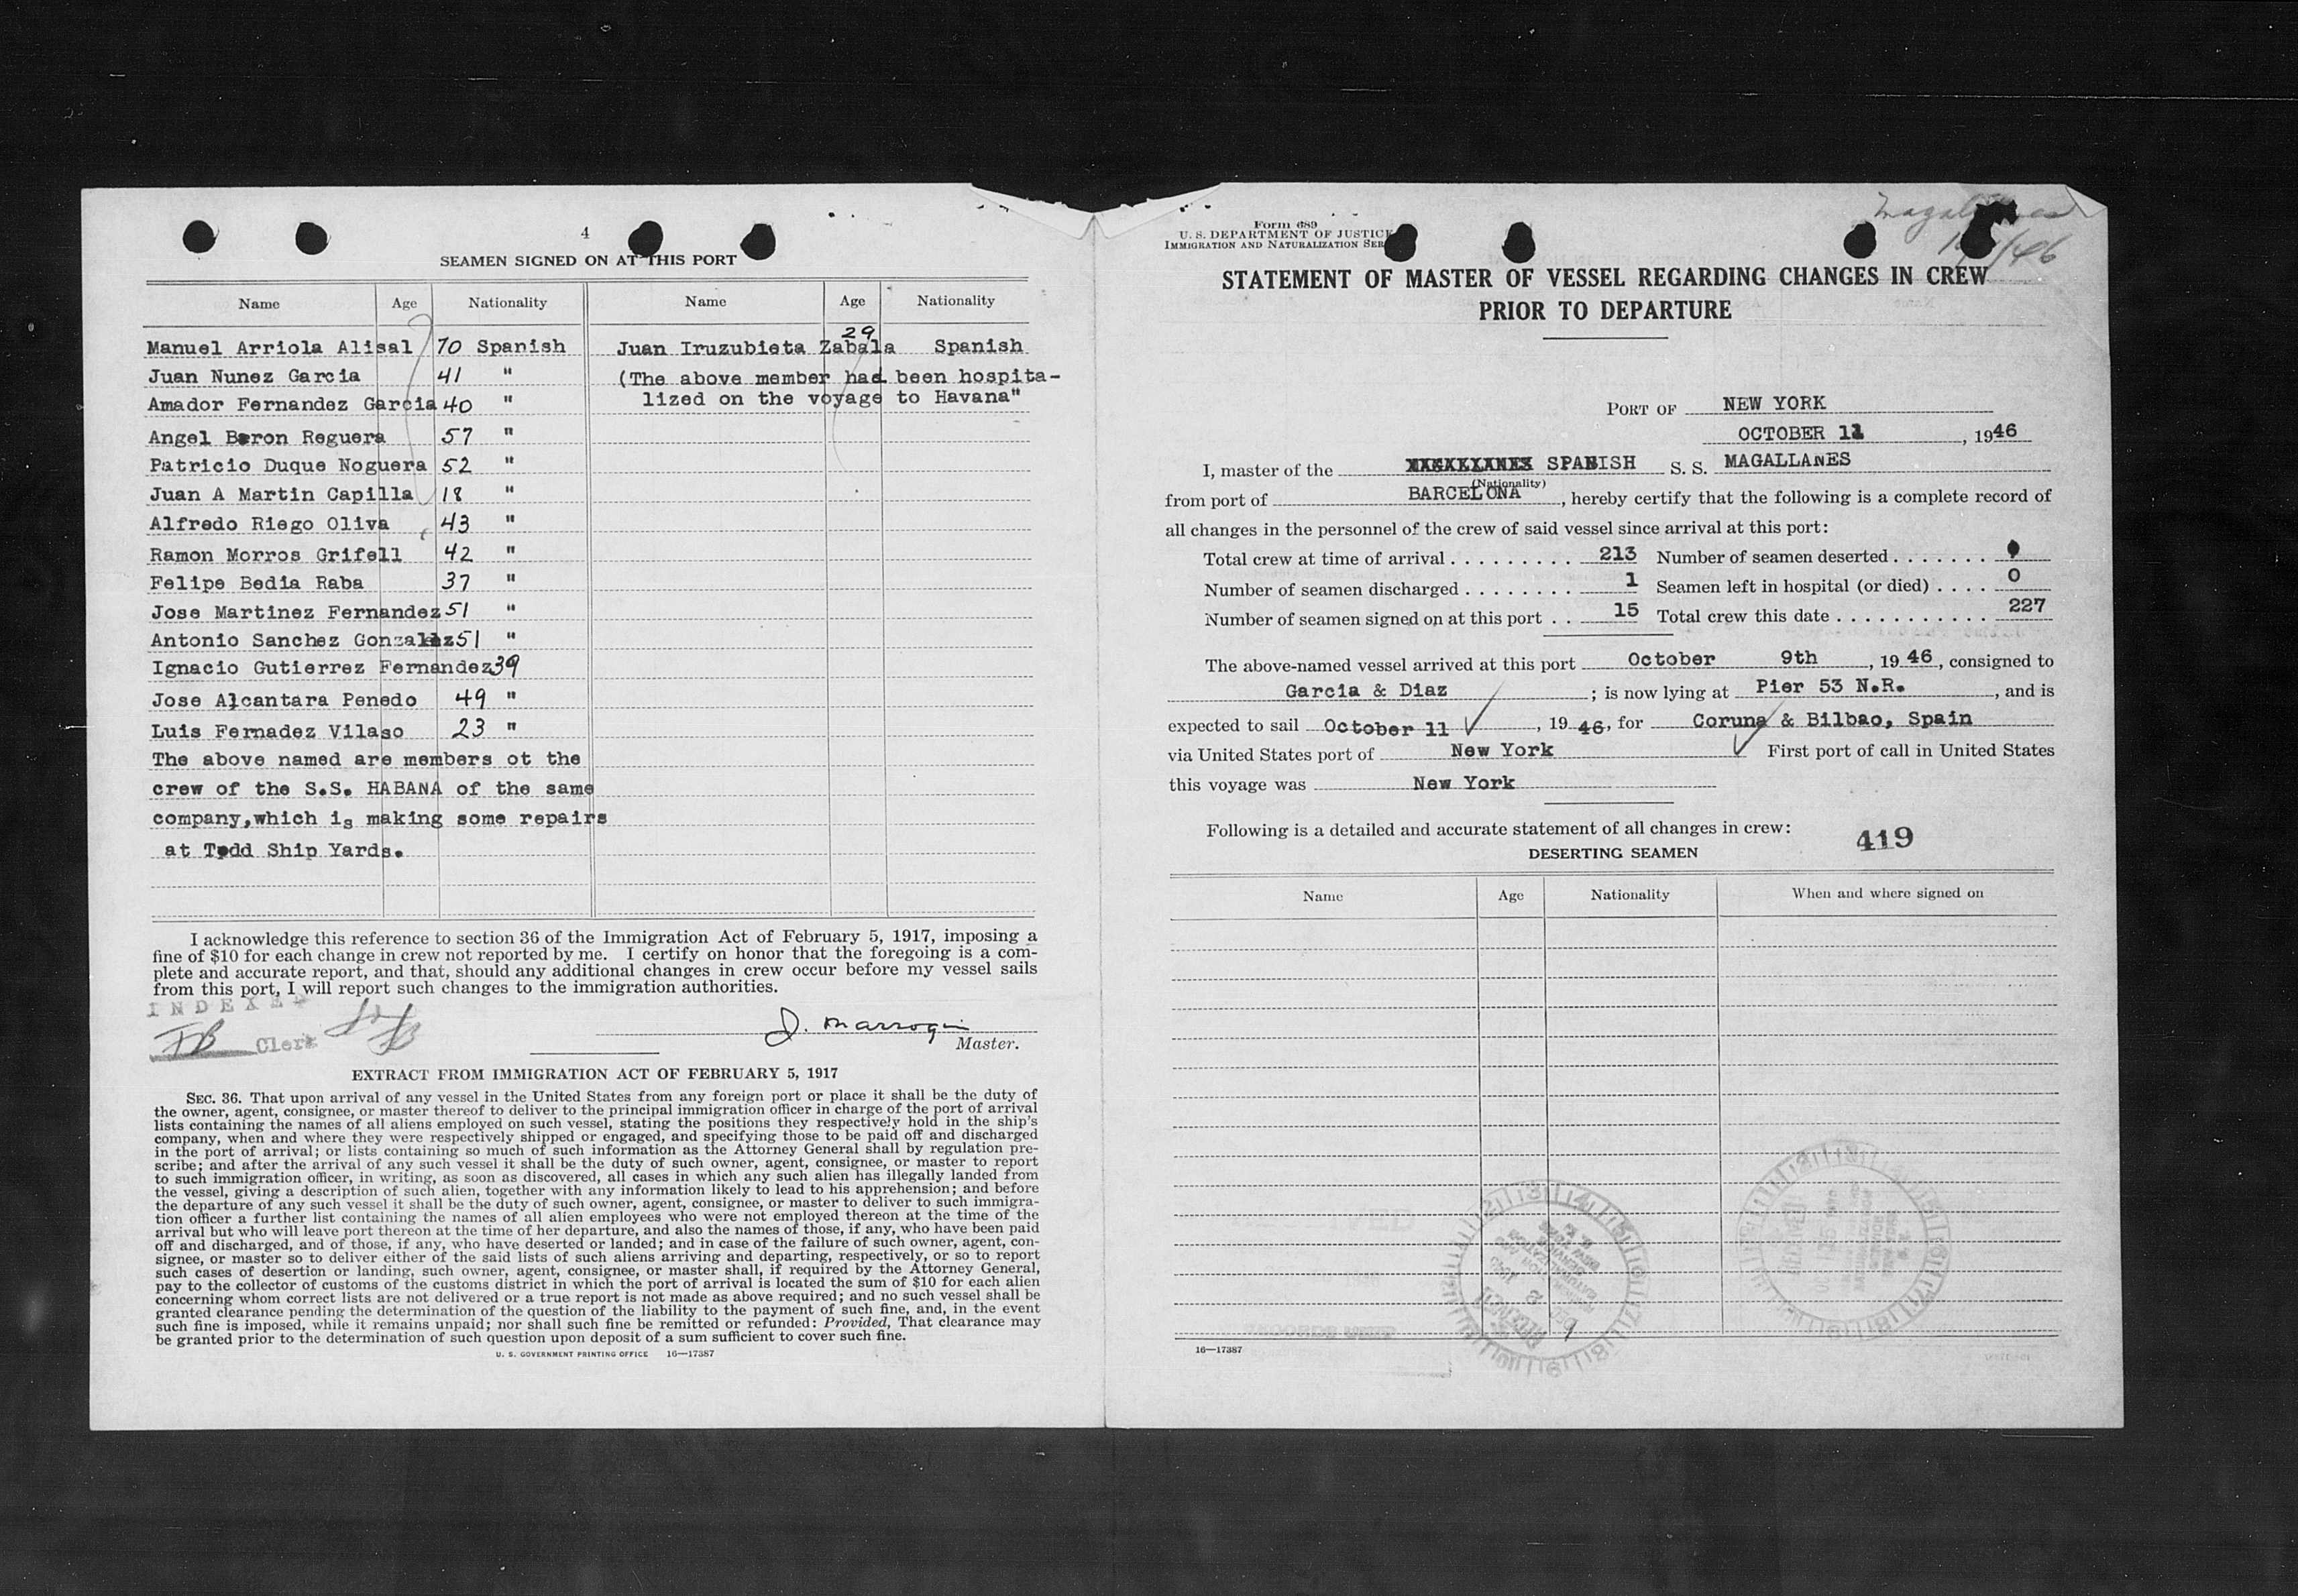 4
SEAMEN SIGNED ON AT THIS PORT
Name Age Nationality Name Age Nationality
Manuel Arriola Alisal 70 Spanish
Juan Nunez Garcia 41 "
Amador Fernandez Garcia 40 "
Angel Baron Reguera 57 "
Patricio Duque Noguera 52 "
Juan A Martin Capilla 18 "
Alfredo Riego Oliva 43 "
Ramon Morros Grifell 42 "
Felipe Bedia Raba 37 "
Jose Martinez Fernandez 51 "
Antonio Sanchez Gonzalez 51 "
Ignacio Gutierrez Fernandez 39
Jose Alcantara Penedo 49 "
Luis Fernadez Vilaso 23 "
The above named are members ot the
crew of the S.S. HABANA of the same
company,which is making some repairs
at Todd Ship Yards.
Juan Iruzubieta Zabala 29 Spanish
(The above member had been hospita-
lized on the voyage to Havana"
I acknowledge this reference to section 36 of the Immigration Act of February 5, 1917, imposing a
fine of $10 for each change in crew not reported by me. I certify on honor that the foregoing is a com-
plete and accurate report, and that, should any additional changes in crew occur before my vessel sails
from this port, I will report such changes to the immigration authorities.
INDEXED
FB Clerk
J. Marroqin
Master.
EXTRACT FROM IMMIGRATION ACT OF FEBRUARY 5, 1917
SEC. 36. That upon arrival of any vessel in the United States from any foreign port or place it shall be the duty of
the owner, agent, consignee, or master thereof to deliver to the principal immigration officer in charge of the port of arrival
lists containing the names of all aliens employed on such vessel, stating the positions they respectively hold in the ship's
company, when and where they were respectively shipped or engaged, and specifying those to be paid off and discharged
in the port of arrival; or lists containing so much of such information as the Attorney General shall by regulation pre-
scribe; and after the arrival of any such vessel it shall be the duty of such owner, agent, consignee, or master to report
to such immigration officer, in writing, as soon as discovered, all cases in which any such alien has illegally landed from
the vessel, giving a description of such alien, together with any information likely to lead to his apprehension; and before
the departure of any such vessel it shall be the duty of such owner, agent, consignee, or master to deliver to such immigra-
tion officer a further list containing the names of all alien employees who were not employed thereon at the time of the
arrival but who will leave port thereon at the time of her departure, and also the names of those, if any, who have been paid
off and discharged, and of those, if any, who have deserted or landed; and in case of the failure of such owner, agent, con-
signee, or master so to deliver either of the said lists of such aliens arriving and departing, respectively, or so to report
such cases of desertion or landing, such owner, agent, consignee, or master shall, if required by the Attorney General,
pay to the collector of customs of the customs district in which the port of arrival is located the sum of $10 for each alien
concerning whom correct lists are not delivered or a true report is not made as above required; and no such vessel shall be
granted clearance pending the determination of the question of the liability to the payment of such fine, and, in the event
such fine is imposed, while it remains unpaid; nor shall such fine be remitted or refunded: Provided, That clearance may
be granted prior to the determination of such question upon deposit of a sum sufficient to cover such fine.
U. S. GOVERNMENT PRINTING OFFICE 16—17387
Form 689
U. S. DEPARTMENT OF JUSTICE
IMMIGRATION AND NATURALIZATION SER
STATEMENT OF MASTER OF VESSEL REGARDING CHANGES IN CREW
PRIOR TO DEPARTURE
PORT OF NEW YORK
OCTOBER 11, 1946
I, master of the SPANISH S. S. MAGALLANES
(Nationality)
from port of BARCELONA, hereby certify that the following is a complete record of
all changes in the personnel of the crew of said vessel since arrival at this port:
Total crew at time of arrival . . . . . . . . . 213 Number of seamen deserted . . . . . . .
Number of seamen discharged . . . . . . . . 1 Seamen left in hospital (or died) . . . . 0
Number of seamen signed on at this port . . 15 Total crew this date . . . . . . . . . . . 227
The above-named vessel arrived at this port October 9th, 1946, consigned to
Garcia & Diaz; is now lying at Pier 53 N.R., and is
expected to sail October 11, 1946, for Coruna & Bilbao, Spain
via United States port of New York First port of call in United States
this voyage was New York
Following is a detailed and accurate statement of all changes in crew:
419
DESERTING SEAMEN
Name Age Nationality When and where signed on
16—17387